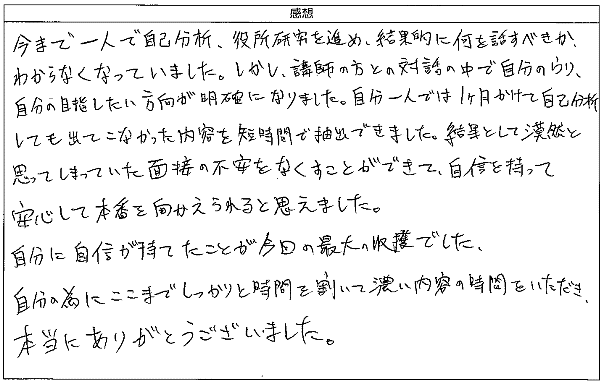 感想
今まで一人で自己分析、役所研究を進め、結果的に何を話すべきか、
わからなくなっていました。しかし、講師の方との対話の中で自分のウリ、
自分の目指したい方向が明確になりました。自分一人では1ヶ月かけて自己分析
しても出てこなかった内容を短時間で抽出できました。結果として漠然と
思ってしまっていた面接の不安をなくすことができて、自信を持って
安心して本番を向かえられると思えました。
自分に自信が持てたことが今回の最大の収穫でした、
自分の為にここまでしっかりと時間を割いて濃い内容の時間をいただき、
本当にありがとうございました。